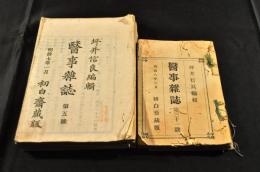 坪井信良編輯
醫事雜誌
第五號
明治七年一月
初白齋藏版
坪井信良編輯
醫事雜誌
初白齋藏版